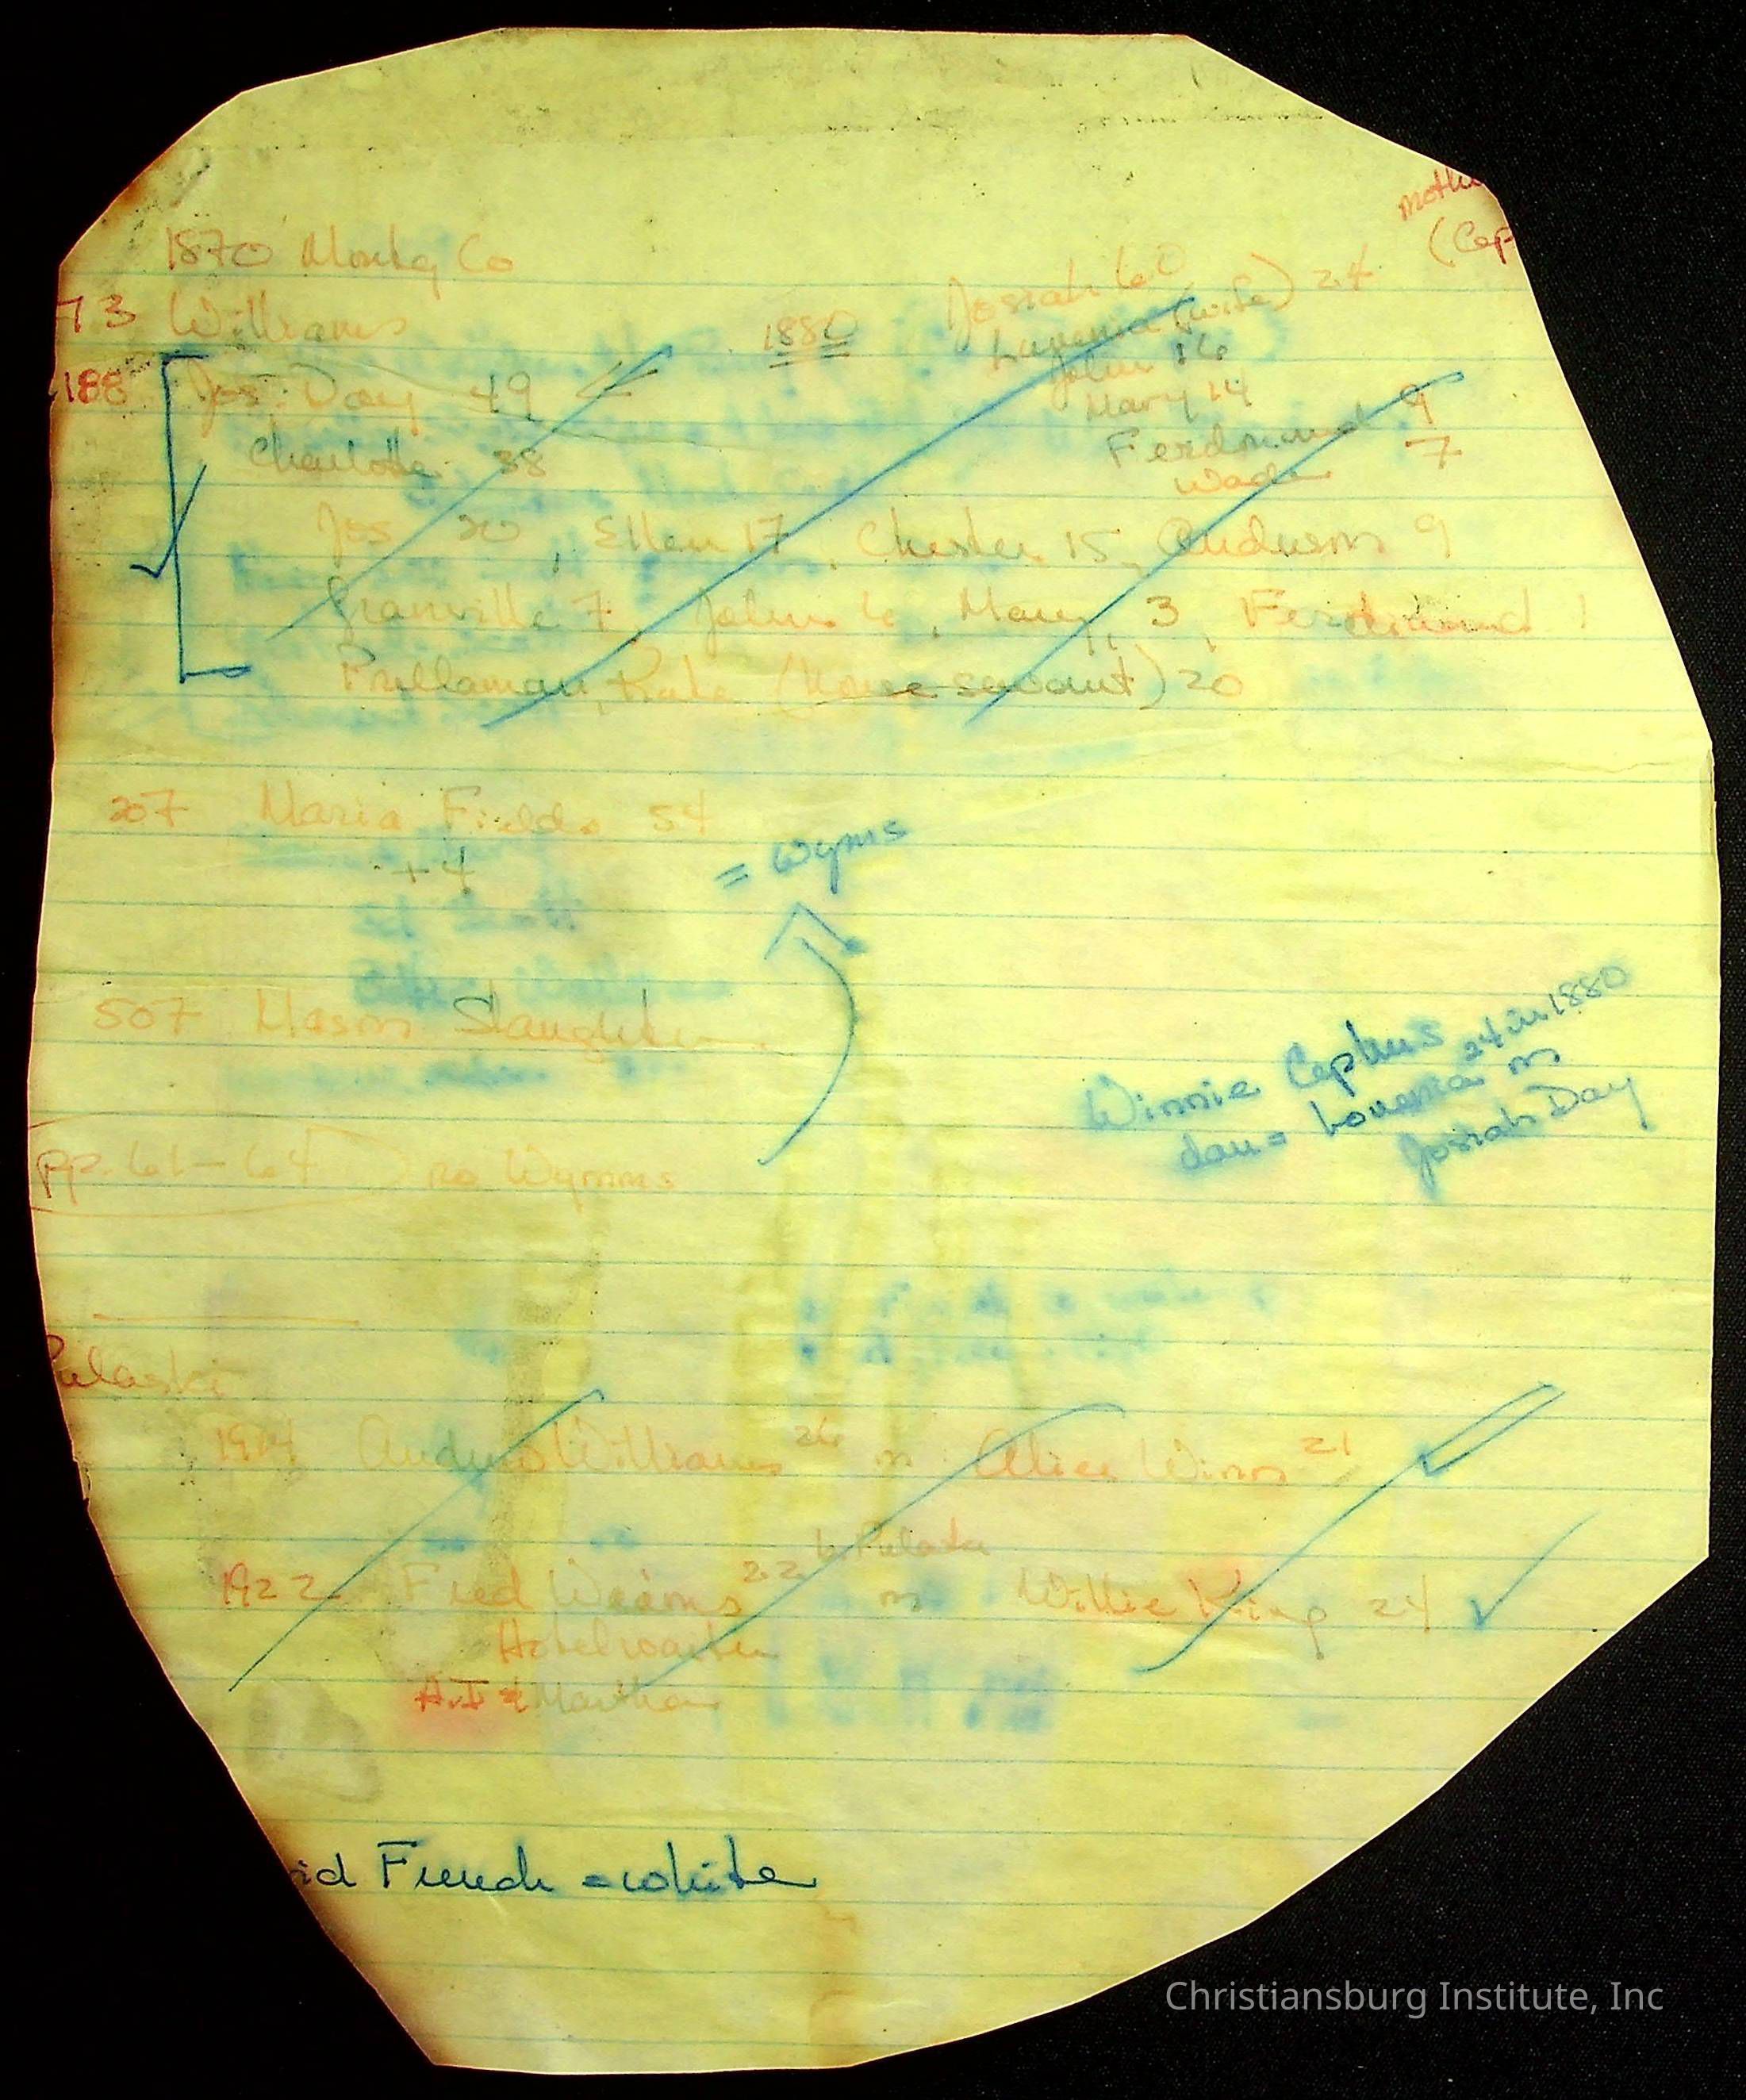 mothe
(Cep
1870 Montg Co
73 Williams
1880
Josiah 60
Louvenia (wife) 24
John 16
Mary 14
Ferdinand 9
Wade 7
188 Jos. Day 49
Charlotte 38
Jos 20, Ellen 17, Chester 15, Anderson 9
Granville 7, John 6, Mary, 3, Ferdinand 1
Prillaman, Kate (house servant) 20
207 Maria Fields 54
+4
= Wyms
507 Mason Slaughter
Winnie Cephus
dau = Louvenia 24 in 1880 m
Josiah Day
pp. 61-64 no Wymms
Pulaski
1914 Andrew Williams 26 m Alice Winn 21
1922 Fred Weams 22 b. Pulaski m Willie King 24
Hotel waiter
A.J & Martha
id French = white
Christiansburg Institute, Inc